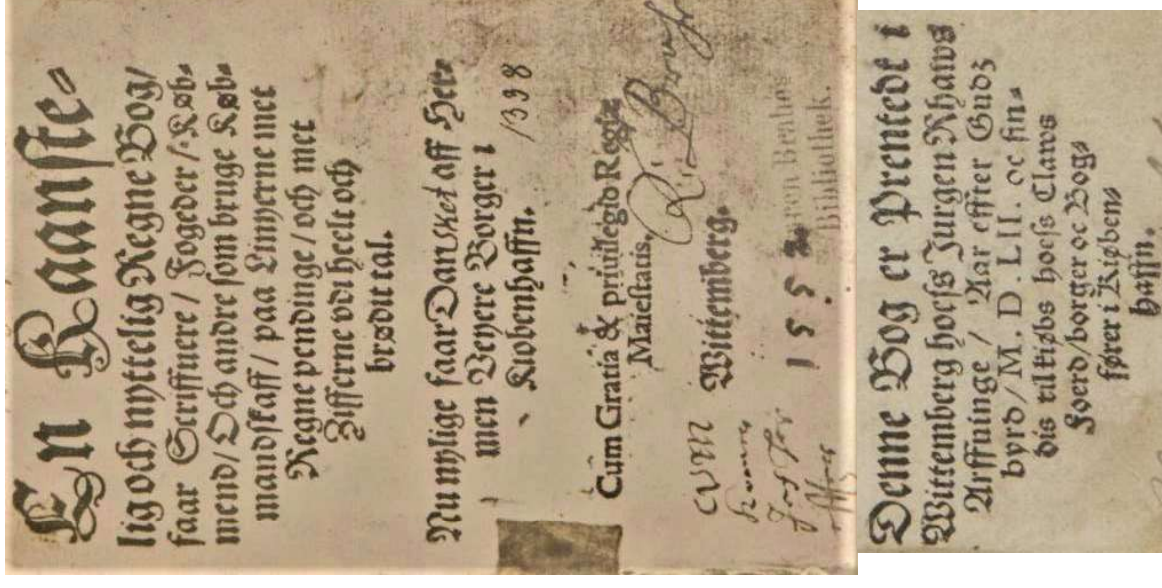 En Kaanste⸗
lig och nyttelig Regne Bog/
faar Scriffuere / Fogeder / Køb⸗
mend/Och andre som bruge Køb⸗
mandskaff/ paa Linyerne met
Regne pendinge/och met
Zifferne vdi heelt och
brødit tal.
Nu nylige faar Dansket aff Her⸗
men Veyere Borger i
Kiobenhaffn.
1398
Cum Gratia & priuilegio Regiæ
Maiestatis.
Wittemberg.
1552
Bibliothek.
Denne Bog er Prentedt i
Wittemberg hoess Jurgen Rhaws
Arffuinge / Aar effter Gudz
byrd/M. D. LII. oc fin⸗
dis til kiøbs hoess Claws
Foerd/borger oc Bog⸗
fører i Kiøben⸗
haffn.